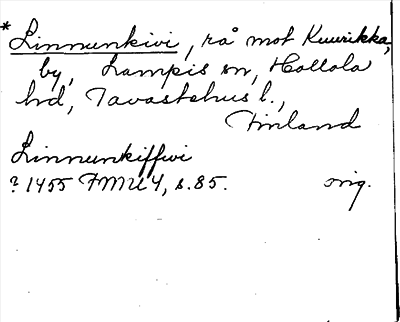 * Linnunkivi, rå mot Kuurikka,
by, Lampis sn, Hollola
hd, Tavastehus l.,
Finland
Linnunkiffwi
? 1455 FMU 4, s. 85. orig.